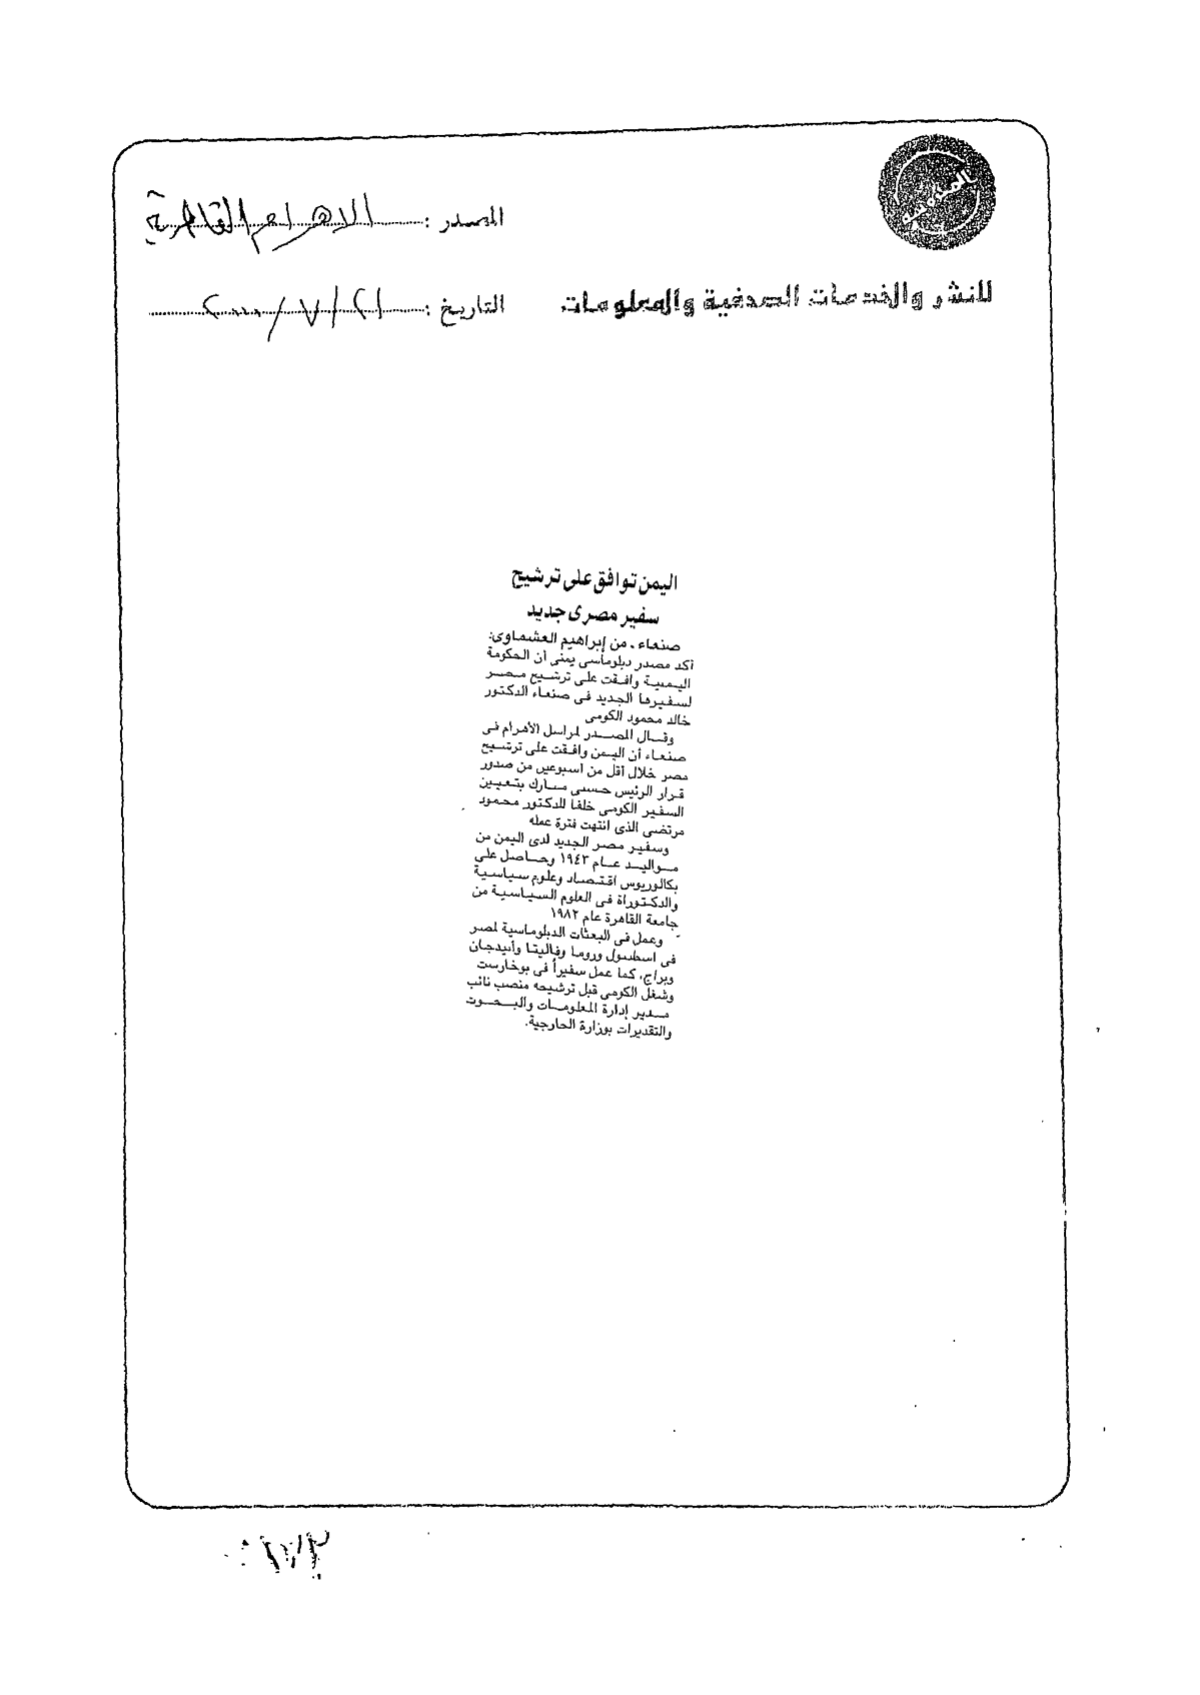 المصدر : الاهرام القاهرية
للنشر والخدمات الصحفية والمعلومات
التاريخ : ٢١ / ٧ / ٢٠٠٠
اليمن توافق على ترشيح
سفير مصرى جديد
صنعاء ـ من إبراهيم العشماوى:
أكد مصدر دبلوماسى يمنى أن الحكومة
اليمنية وافقت على ترشيح مصر
لسفيرها الجديد فى صنعاء الدكتور
خالد محمود الكومى
وقال المصدر لمراسل الأهرام فى
صنعاء أن اليمن وافقت على ترشيح
مصر خلال أقل من أسبوعين من صدور
قرار الرئيس حسنى مبارك بتعيين
السفير الكومى خلفا للدكتور محمود
مرتضى الذى انتهت فترة عمله
وسفير مصر الجديد لدى اليمن من
مواليد عام ١٩٤٣ وحاصل على
بكالوريوس اقتصاد وعلوم سياسية
والدكتوراة فى العلوم السياسية من
جامعة القاهرة عام ١٩٨٢
وعمل فى البعثات الدبلوماسية لمصر
فى اسطنبول وروما وفاليتا وأبيدجان
وبراج، كما عمل سفيراً فى بوخارست
وشغل الكومى قبل ترشيحه منصب نائب
مدير إدارة المعلومات والبحوث
والتقديرات بوزارة الخارجية.